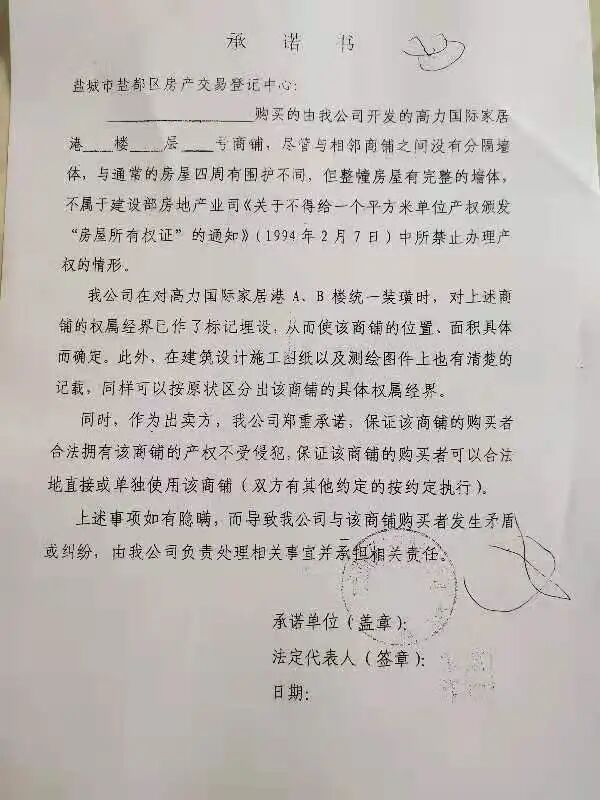 承诺书
盐城市盐都区房产交易登记中心：
____________购买的由我公司开发的高力国际家居
港___楼___层___号商铺，尽管与相邻商铺之间没有分隔墙
体，与通常的房屋四周有围护不同，但整幢房屋有完整的墙体，
不属于建设部房地产业司《关于不得给一个平方米单位产权颁发
“房屋所有权证”的通知》（1994年2月7日）中所禁止办理产
权的情形。
我公司在对高力国际家居港A、B楼统一装璜时，对上述商
铺的权属经界已作了标记埋设，从而使该商铺的位置、面积具体
而确定。此外，在建筑设计施工图纸以及测绘图件上也有清楚的
记载，同样可以按原状区分出该商铺的具体权属经界。
同时，作为出卖方，我公司郑重承诺，保证该商铺的购买者
合法拥有该商铺的产权不受侵犯，保证该商铺的购买者可以合法
地直接或单独使用该商铺（双方有其他约定的按约定执行）。
上述事项如有隐瞒，而导致我公司与该商铺购买者发生矛盾
或纠纷，由我公司负责处理相关事宜并承担相关责任。
承诺单位（盖章）：
法定代表人（签章）：
日期：